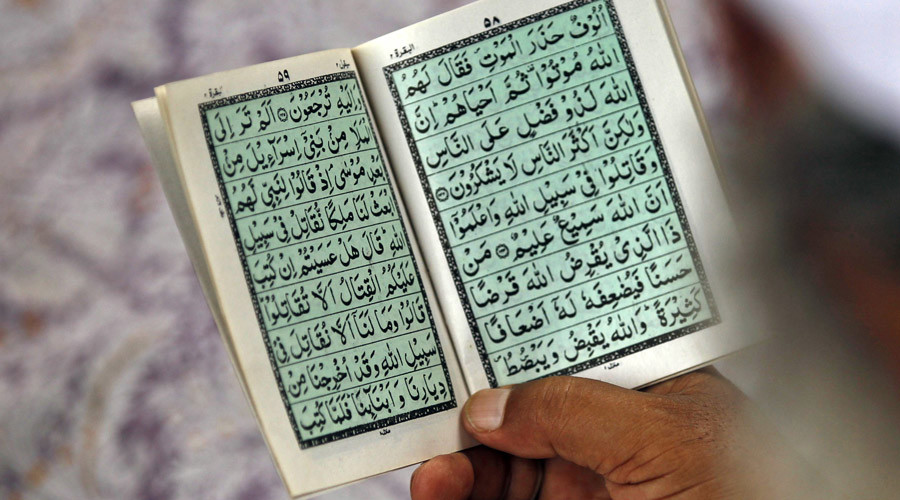 البقرة ٢
٥٨
اُلُوْفٌ حَذَرَ الْمَوْتِ فَقَالَ لَهُمُ
اللّٰهُ مُوْتُوْا ثُمَّ اَحْيَاهُمْ اِنَّ
اللّٰهَ لَذُوْ فَضْلٍ عَلَى النَّاسِ
وَلٰكِنَّ اَكْثَرَ النَّاسِ لَا يَشْكُرُوْنَ
وَقَاتِلُوْا فِيْ سَبِيْلِ اللّٰهِ وَاعْلَمُوْٓا
اَنَّ اللّٰهَ سَمِيْعٌ عَلِيْمٌ مَنْ
ذَا الَّذِيْ يُقْرِضُ اللّٰهَ قَرْضًا
حَسَنًا فَيُضٰعِفَهٗ لَهٗٓ اَضْعَافًا
كَثِيْرَةً وَاللّٰهُ يَقْبِضُ وَيَبْصُۜطُ
منزل ١
سيقول ٢
٥٩
البقرة ٢
وَاِلَيْهِ تُرْجَعُوْنَ اَلَمْ تَرَ اِلَى
الْمَلَاِ مِنْ بَنِيْٓ اِسْرَآءِيْلَ مِنْ
بَعْدِ مُوْسٰى اِذْ قَالُوْا لِنَبِيٍّ لَّهُمُ
ابْعَثْ لَنَا مَلِكًا نُّقَاتِلْ فِيْ سَبِيْلِ
اللّٰهِ قَالَ هَلْ عَسَيْتُمْ اِنْ كُتِبَ
عَلَيْكُمُ الْقِتَالُ اَلَّا تُقَاتِلُوْا
قَالُوْا وَمَا لَنَآ اَلَّا نُقَاتِلَ فِيْ
سَبِيْلِ اللّٰهِ وَقَدْ اُخْرِجْنَا مِنْ
دِيَارِنَا وَاَبْنَآئِنَا فَلَمَّا كُتِبَ
منزل ١